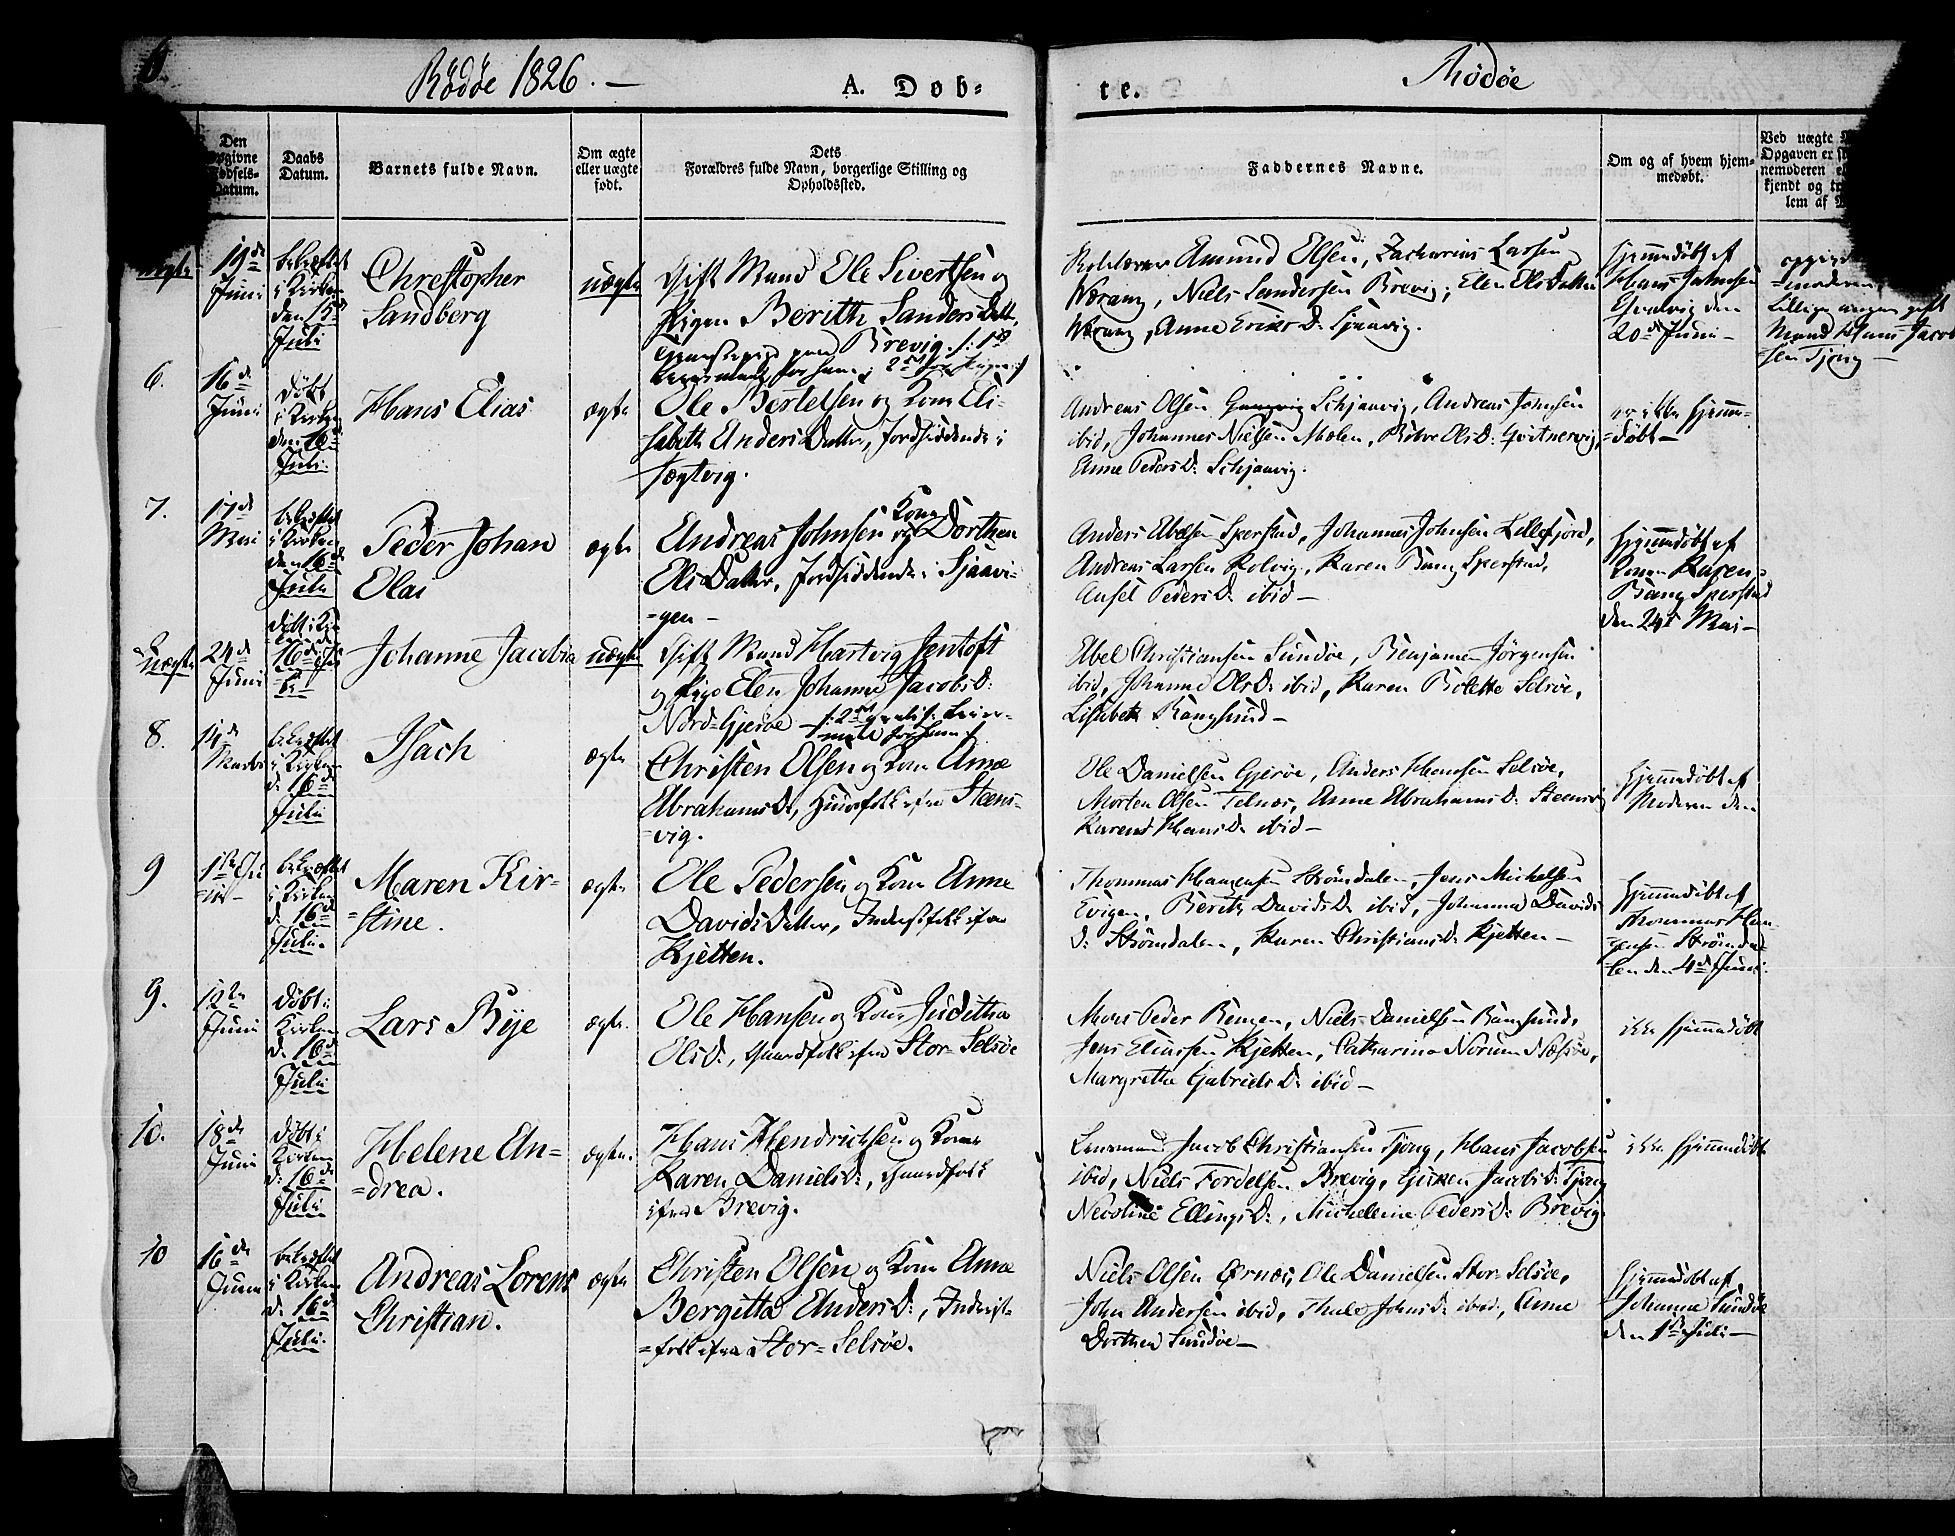 6
Rødøe 1826. —
A. Døb-
te.
Rødøe
Den
opgivne
Fødsels-
Datum.
Daabs
Datum.
Barnets fulde Navn.
Om ægte
eller uægte
født.
Dets
Forældres fulde Navn, borgerlige Stilling og
Opholdssted.
Faddernes Navne.
Om og af hvem hjem-
medøbt.
Ved uægte
Opgaven er
nemoderen
kjendt og
lem af
uægte
19de
Juni
bekræftet
i Kirken
den 15d
Juli
Christopher
Sandberg
uægte
Gift Mand Ole Sivertsen og
Pigen Berith Sanders Datt.
Brevig. /: 1ste
Leiermaal for ham, 2det for Pigen :/
Amund Olsen, Zacharias Larsen
Værang, Niels Sandersen Brevig, Elen Ols Datter
Værang, Anne Eriks D:
Hjemmedøbt af
Hans Johnsen
den
20de Juni —
moderen
gift
Mand Hans Jacob
sen Tjong —
6.
16de
Juni
Døbt
i Kirken
den 16d
Juli.
Hans Elias
ægte
Ole Bertelsen og Kone Eli-
sabeth Anders Datter, Jordsiddende i
Sægtvig.
Andreas Olsen Schjanvig, Andreas Johnsen
ibid, Johannes Nielsen Mælen, Ols D:
Anne Peders D: Schjanvig.
er ikke hjemme-
=døbt —
7.
17de
Mai
bekræftet
i Kirken
den 16d
Juli
Peder Johan
Olai
ægte
Andreas Johnsen og Kone Dorthea
Ols Datter, Jordsiddende i Sjaavi-
=gen —
Anders Abelsen Sperstad, Johannes Johnsen Lillefjord,
Andreas Larsen Kolvig, Karen Bang Sperstad,
Ansel Peders D: ibid —
Hjemmedøbt af
Konen Karen
Bang Sperstad
den 24d Mai —
uægte
24de
Juni
Døbt i Kir
16de Ju
li
Johanne Jacobia
uægte
Gift Mand Hartvig Jentoft
og Pige Elen Johanne Jacobs D:
Nord-Gjerøe — /: 2det Leier-
maal for ham :/
Abel Christiansen Sundøe, Benjamin Jørgensen
ibid, Johanna Ols D: ibid, Karen Bolette Selsøe,
Lisabeth Rangsund —
8.
14de
Marts
bekræftet
i Kirken
d: 16de
Juli
Isach
ægte
Christen Olsen og Kone Anne
Abrahams D:, Huusfolk ifra Steens-
=vig.
Ole Danielsen Gjerøe, Anders Hansen Selsøe,
Morten Olsen Telnæs, Anne Abrahams D: Steensvig
Karen Hans D: ibid —
Hjemmedøbt af
Moderen den
9
1ste Ju
ni —
bekræftet
i Kirken
d: 16d
Juli.
Maren Kir-
=stine.
ægte
Ole Pedersen og Kone Anne
Davids Datter, Inderstfolk ifra
Kjetten.
Thommas Hansen Strømdalen, Jens Mickelsen
Evigen, Berith Davids D: ibid, Johanna Davids
D: Strømdalen, Karen Christians D: Kjetten —
Hjemmedøbt af
Thommas Han
sen Strømda-
len den 4de Juni.
9.
12te
Juni
Døbt i
Kirken
d: 16d
Juli
Lars Bye
ægte.
Ole Hansen og Kone Juditha
Ols D:, Gaardfolk ifra Stor-Selsøe
Mons Peder Benzen, Niels Danielsen Rangsund,
Jens Eliassen Kjetten, Catharina Norum Næsøe,
Margretha Gabriels D: ibid —
ikke hjemmedøbt
10.
18de
Juni
Døbt i
Kirken
d: 16d
Juli
Helene An-
=drea.
ægte.
Hans Hendrichsen og Kone
Karen Daniels D:, Gaardfolk
ifra Brevig.
Lensmand Jacob Christiansen Tjong, Hans Jacobsen
ibid, Niels Tordelsen Brevig, Guren Jacobs D: Tjong
Nicoline Ellings D:, Michelena Peders D: Brevig.
ikke hjemmedøbt
10
16de
Juni
bekræftet
i Kirken
d: 16d
Juli.
Andreas Lorens
Christian.
ægte
Christen Olsen og Kone Anne
Bergitta Anders D:, Inderst-
=folk ifra Stor=Selsøe.
Niels Olsen Ørnæs, Ole Danielsen Stor-Selsøe,
John Andersen ibid, Thale Johns D: ibid, Anne
Dorthea Sundøe —
Hjemmedøbt af
Johanne Sundøe
den 1ste Juli —